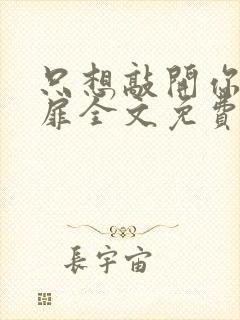 只想敲開你
扉全文免費
長宇宙